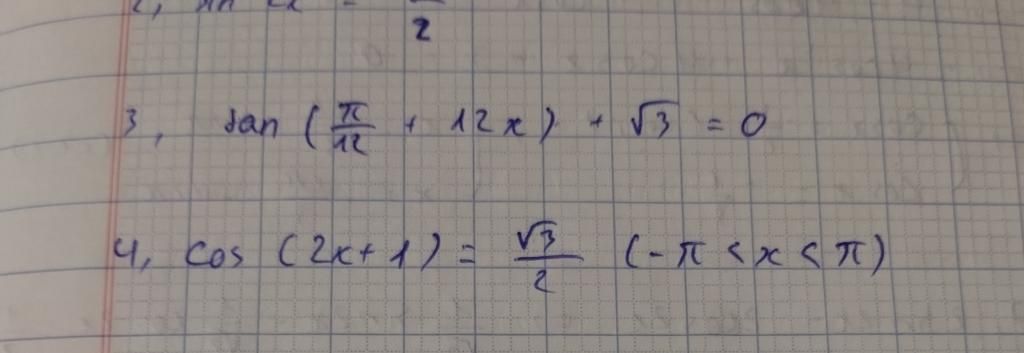 2
3, tan (π/12 + 12x) + √3 = 0
4, cos (2x+1) = √3/2 (-π < x < π)